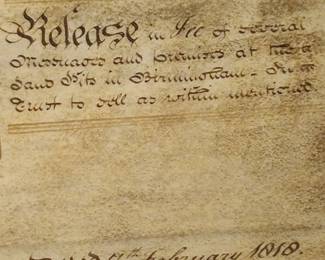 Release in Fee of several
Messuages and Premises at the
Sand Pits in Birmingham - In
Trust to sell as within mentioned
February 1818.